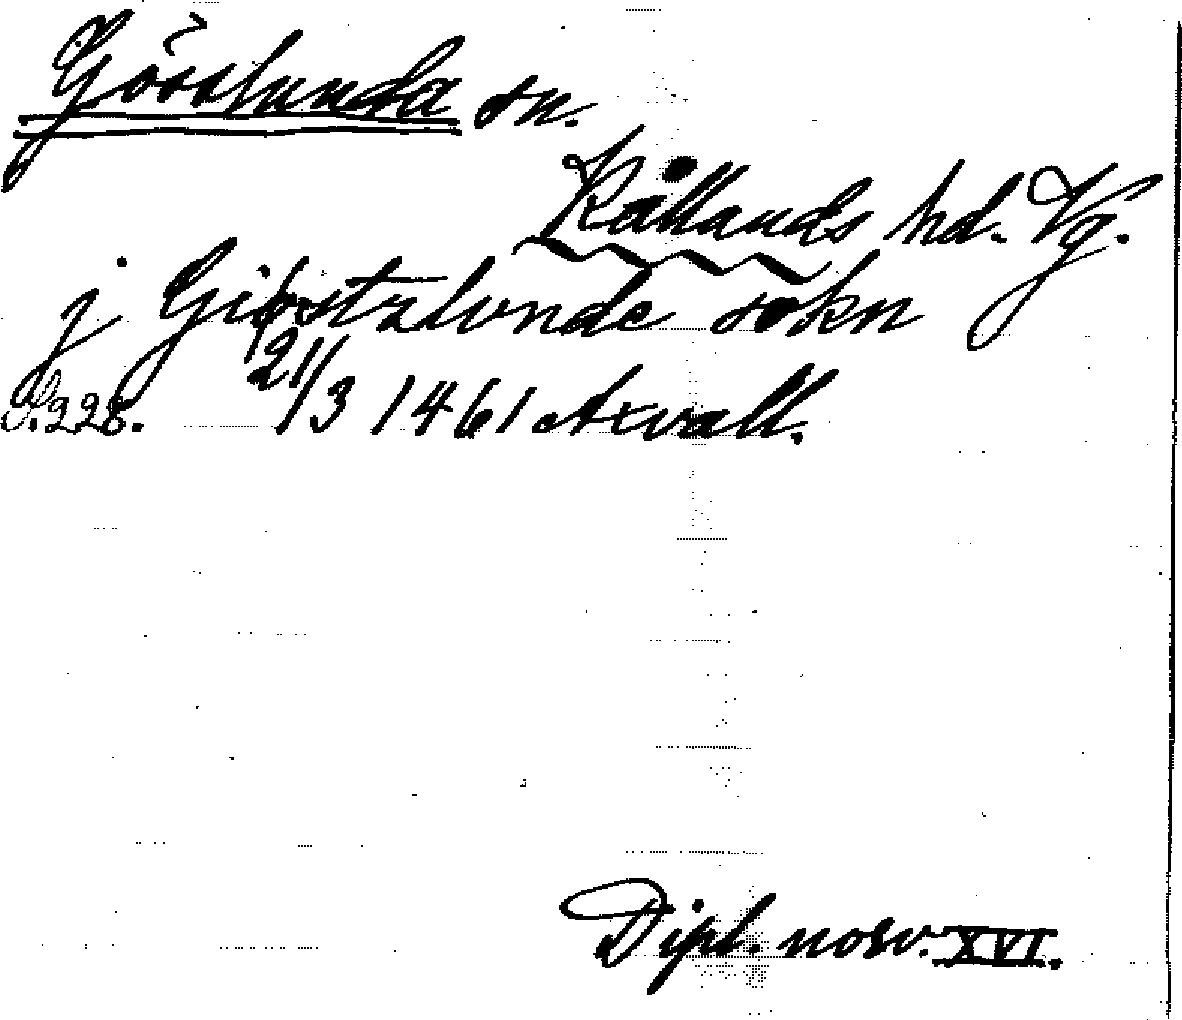 Gösslunda sn.
Kållands hd. Vg.
j Giøstzlunde sokn
S. 228. 21/3 1461 Axvall.
Dipl. norv. XVI.